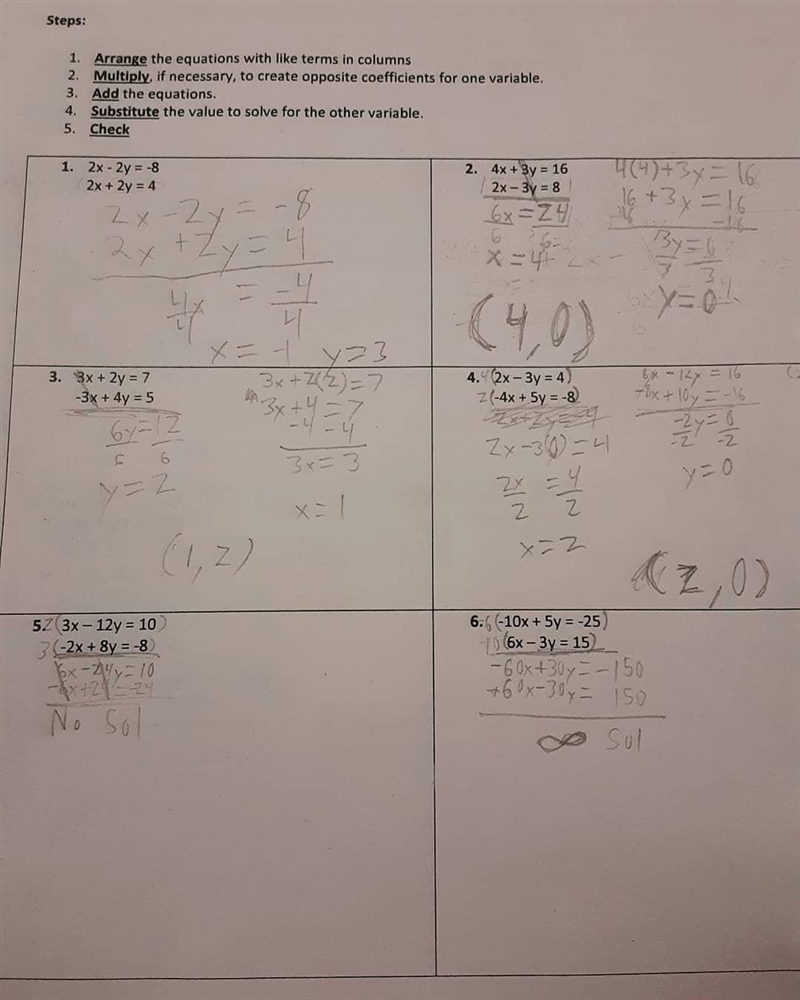 Steps:
1. Arrange the equations with like terms in columns
2. Multiply, if necessary, to create opposite coefficients for one variable.
3. Add the equations.
4. Substitute the value to solve for the other variable.
5. Check
1. 2x - 2y = -8
2x + 2y = 4
2x - 2y = -8
2x + 2y = 4
4x = -4
4 4
x = -1 y = 3
2. 4x + 3y = 16
2x – 3y = 8
6x = 24
6 6
x = 4
4(4) + 3y = 16
16 + 3y = 16
-16 -16
3y = 0
3 3
y = 0
(4,0)
3. 3x + 2y = 7
-3x + 4y = 5
6y = 12
6 6
y = 2
3x + 2(2) = 7
3x + 4 = 7
-4 = 4
3x = 3
x = 1
(1,2)
4. 4(2x – 3y = 4)
2(-4x + 5y = -8)
2x - 3(0) = 4
2x = 4
2 2
x = 2
8x - 12y = 16
-8x + 10y = -16
-2y = 0
-2 -2
y = 0
(2,0)
5. 2(3x – 12y = 10)
3(-2x + 8y = -8)
6x - 24y = 10
-6x + 24 = -24
No Sol
6. 6(-10x + 5y = -25)
10(6x – 3y = 15)
-60x + 30y = -150
+60x - 30y = 150
∞ Sol